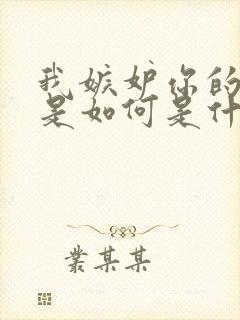 我嫉妒你的
是如何是什
叢某某